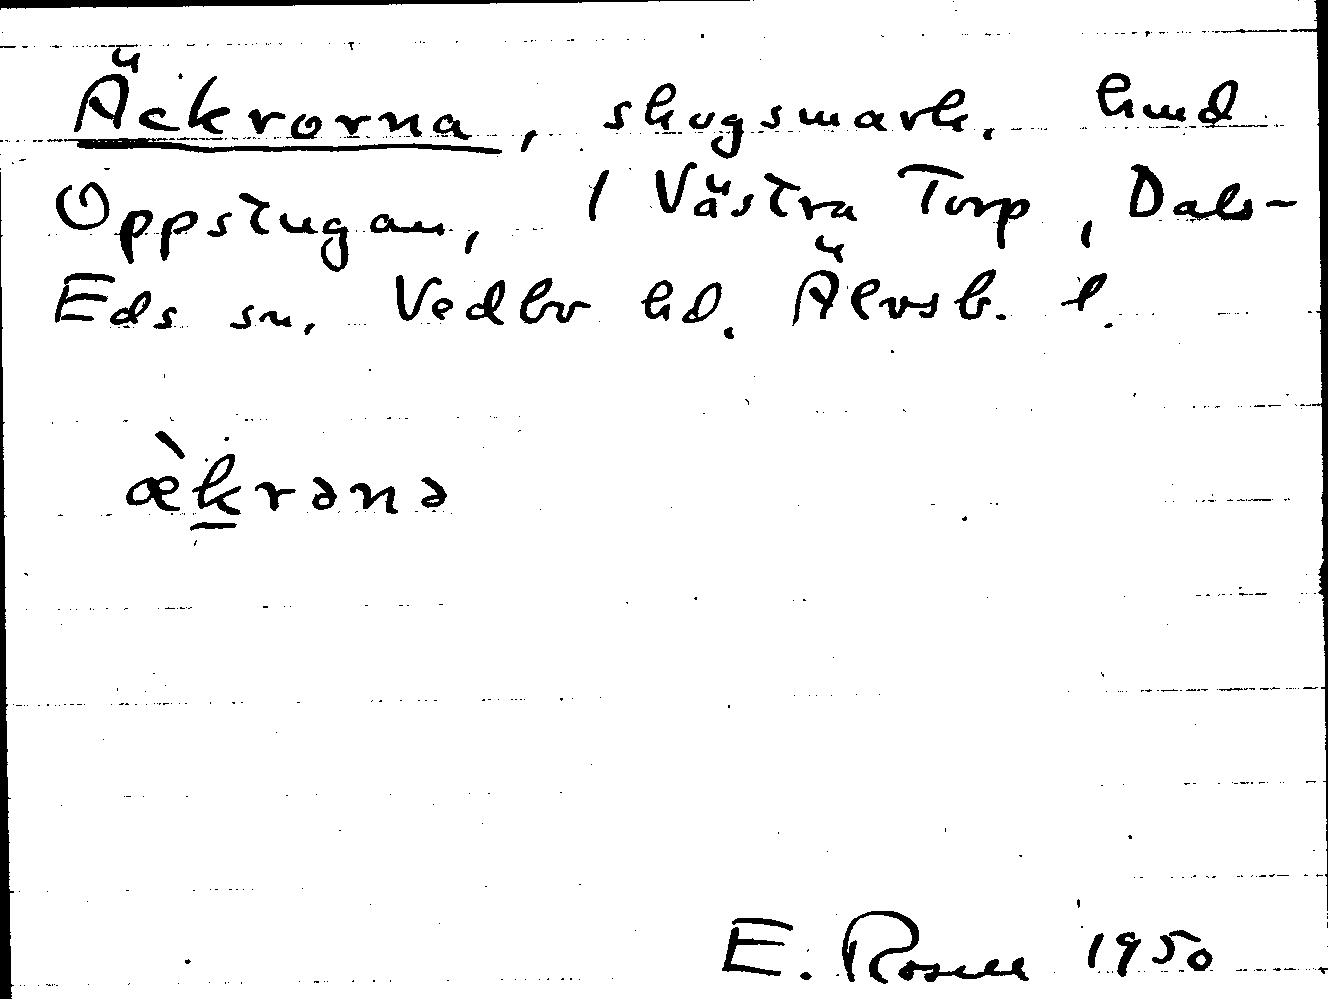 Äckrorna, skogsmark. hmd
Oppstugan, 1 Västra Torp, Dals-
Eds sn. Vedbo hd. Älvsb. l.
æ̀k̲rənə
E. Rosell 1950